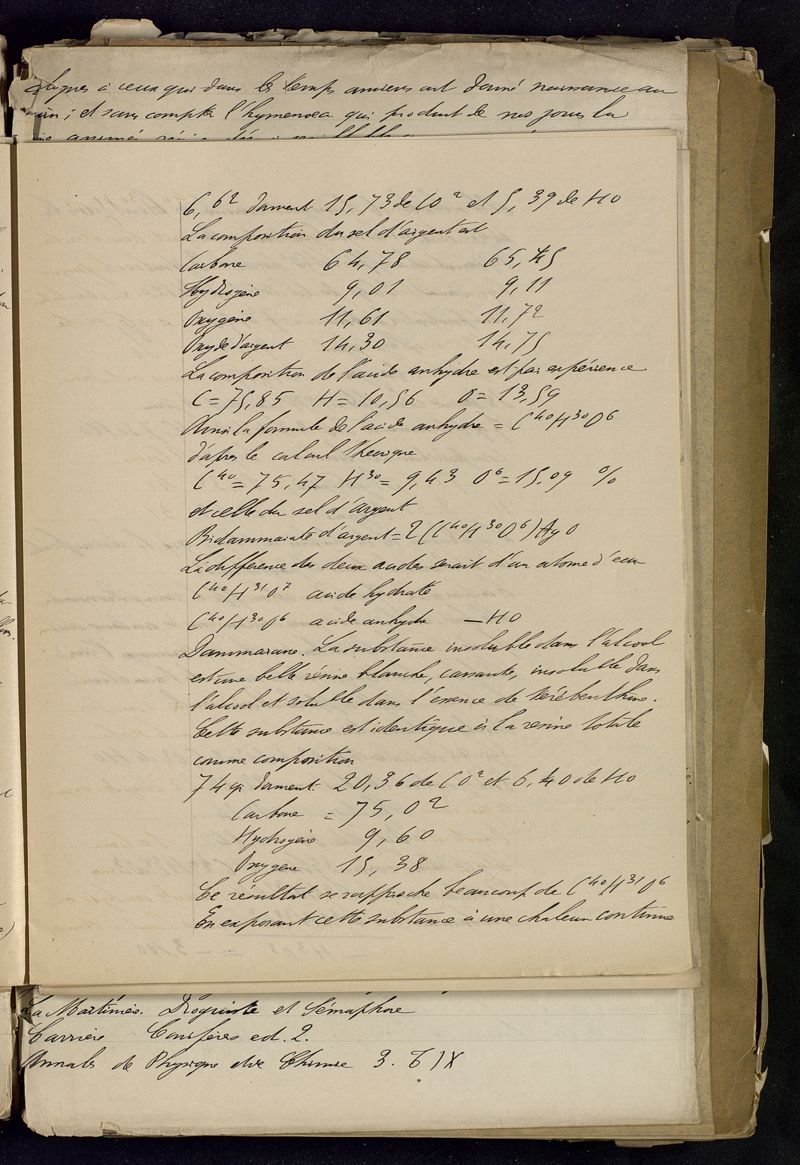 à ceux qui dans les temps anciens ont donné naissance au
; et sans compter l'hymenoea qui produit de nos jours la
6,62 donnent 15,73 de CO² et 5,39 de HO
La composition du sel d'argent est
Carbone 64,78 65,45
Hydrogène 9,01 9,11
Oxygène 11,61 11,72
Oxyde d'argent 14,30 14,75
La composition de l'acide anhydre est par expérience
C = 75,85 H = 10,56 O = 13,59
Ainsi la formule de l'acide anhydre = C⁴⁰H³⁰O⁶
d'après le calcul théorique
C⁴⁰ = 75,47 H³⁰ = 9,43 O⁶ = 15.09 %
et celle du sel d'argent
Bidammarate d'argent = 2(C⁴⁰H³⁰O⁶)AgO
La différence des deux acides serait d'un atome d'eau
C⁴⁰H³¹O⁷ acide hydraté
C⁴⁰H³⁰O⁶ acide anhydre — HO
Dammarane. La substance insoluble dans l'alcool
est une belle résine blanche, cassante, insoluble dans
l'alcool et soluble dans l'essence de térébenthine.
Cette substance est identique à la résine totale
comme composition
7,4 gr donnent 20,36 de CO² et 6,40 de HO
Carbone = 75,02
Hydrogène 9,60
Oxygène 15,38
Ce résultat se rapproche beaucoup de C⁴⁰H³¹O⁶
En exposant cette substance à une chaleur continue
La Martinière. Droguiste et Sémaphore
Carrière Conifères ed. 2.
Annales de Physique et de Chimie 3. T IX